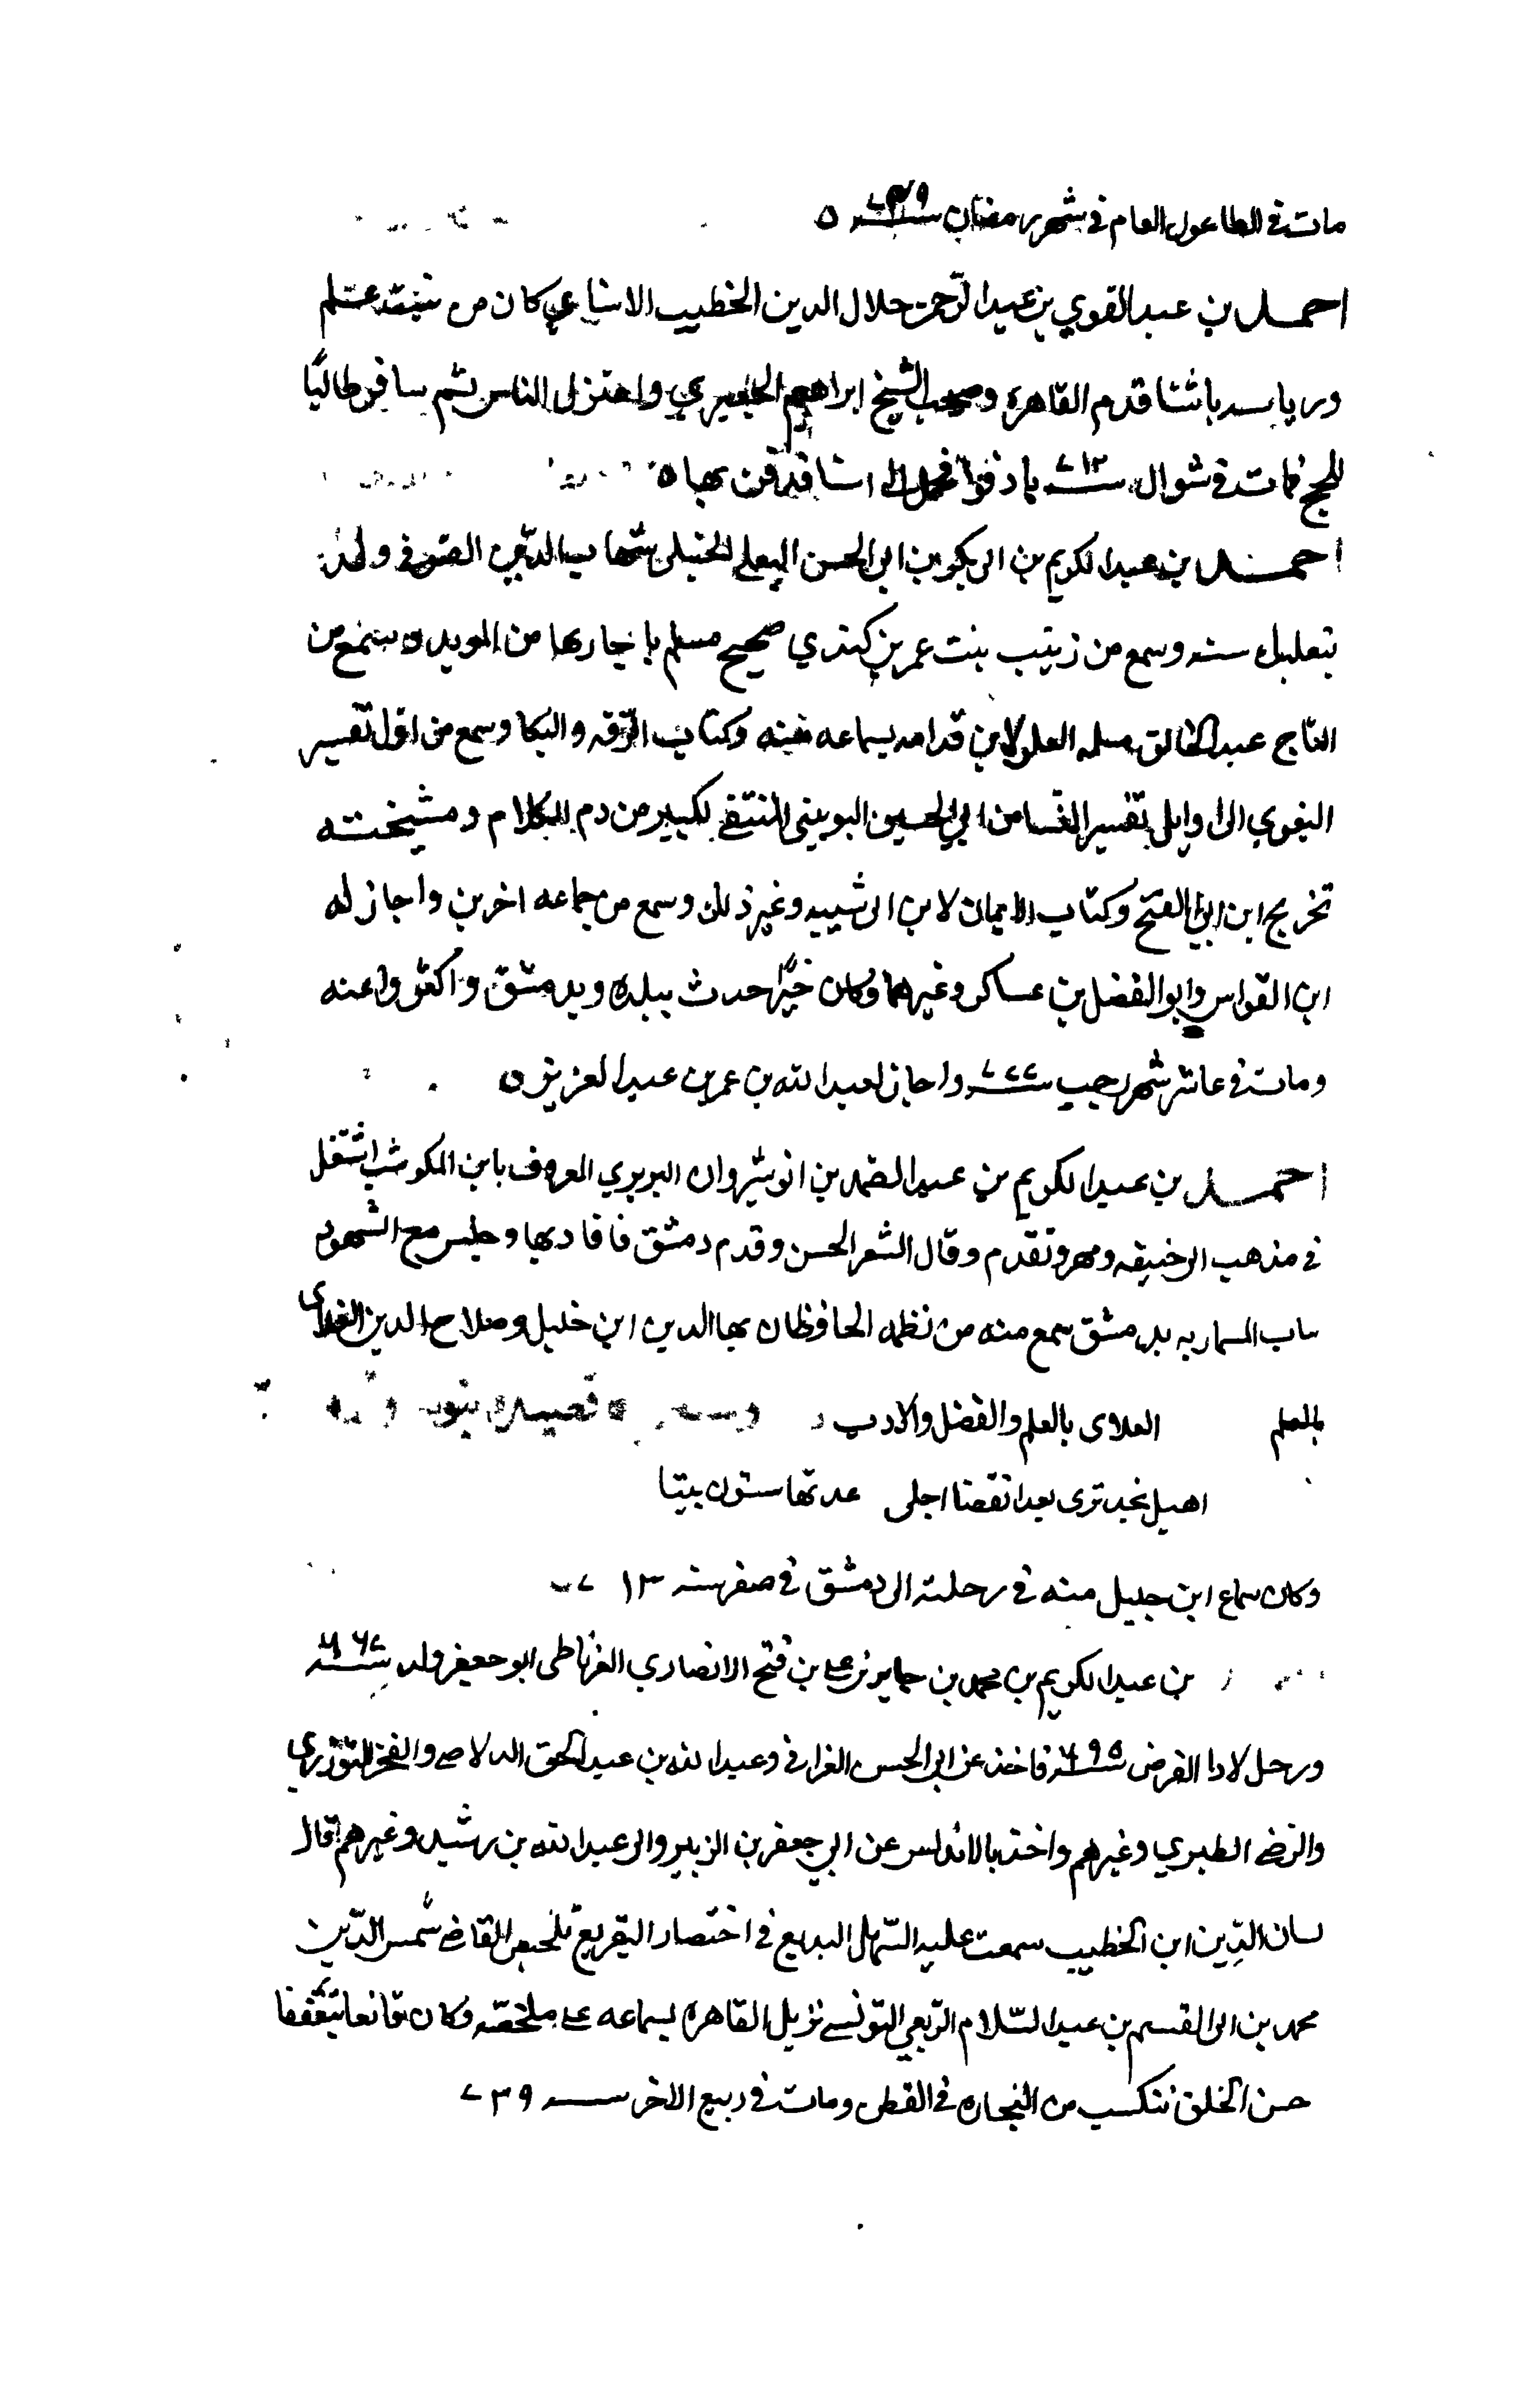 مات في الطاعون العام في شهر رمضان سنة ٧٤٩
احمد بن عبد القوي بن عبد الرحمن جلال الدين الخطيب الاسناءي كان من بيت علم
ورياسة باسنا قدم القاهرة وصحب الشيخ ابراهيم الجعبري واعتزل الناس ثم سافر طالبًا
للحج فمات في شوال سنة ٧١٢ بادفوا فحمل الى اسنا فدفن بها
احمد بن عبد الكريم بن ابى بكر بن ابي الحسن البعلي الحنبلى شهاب الدين الصوفي ولد
ببعلبك سنة وسمع من زينب بنت عمر بن كندي صحيح مسلم باجازتها من المويد وسمع من
التاج عبد الخالق مسلة العلو لابن قدامه بسماعه منه وكتاب الرقه والبكا وسمع من اول تفسير
البغوي الى اوايل تفسير النسا من ابي الحسين اليونيني المنتقى الكبير من ذم الكلام ومشيخته
تخريج ابن ابي الفتح وكتاب الايمان لابن ابى شيبه وغير ذلك وسمع من جماعه اخرين واجاز له
ابن القواس وابو الفضل بن عساكر وغيرهما وكان خيرًا حدث ببلده وبدمشق واكثروا عنه
ومات في عاشر شهر رجب سنة ٧٧٧ واجاز لعبد الله بن عمر بن عبد العزيز
احمد بن عبد الكريم بن عبد الصمد بن انوشروان التبريزي المعروف بابن المكوشت اشتغل
في مذهب ابى حنيفه ومهر وتقدم وقال الشعر الحسن وقدم دمشق فافاد بها وجلس مع الشهود
بباب المسماريه بدمشق سمع منه من نظمه الحافظان بها الدين ابن خليل وصلاح الدين العلاى
بالعلم العلاى بالعلم والفضل والادب
اهيل نجد ترى بعد انقضا اجلى عدتها ستون بيتا
وكان سماع ابن خليل منه في رحلته الى دمشق في صفر سنة
بن عبد الكريم بن محمد بن جابر بن علي بن فتح الانصاري الغرناطى ابو جعفر ولد سنة
ورحل لادا الفرض سنة ٦٩٥ فاخذ عن ابي الحسن الغرافي وعبد الله بن عبد الحق الدلاصي والفخر التوزري
والرضى الطبري وغيرهم واخذ بالاندلس عن ابي جعفر بن الزبير وابى عبد الله بن رشيد وغيرهم قال
لسان الدين ابن الخطيب سمعت عليه السهل البديع في اختصار التفريع تلخيص القاضي شمس الدين
محمد بن ابى القسم بن عبد السلام الربعي التونسي نزيل القاهرة بسماعه على ملخصه وكان قانعا متقففا
حسن الخلق يتكسب من التجاره في القطن ومات في ربيع الاخر سنة ٧٣٩